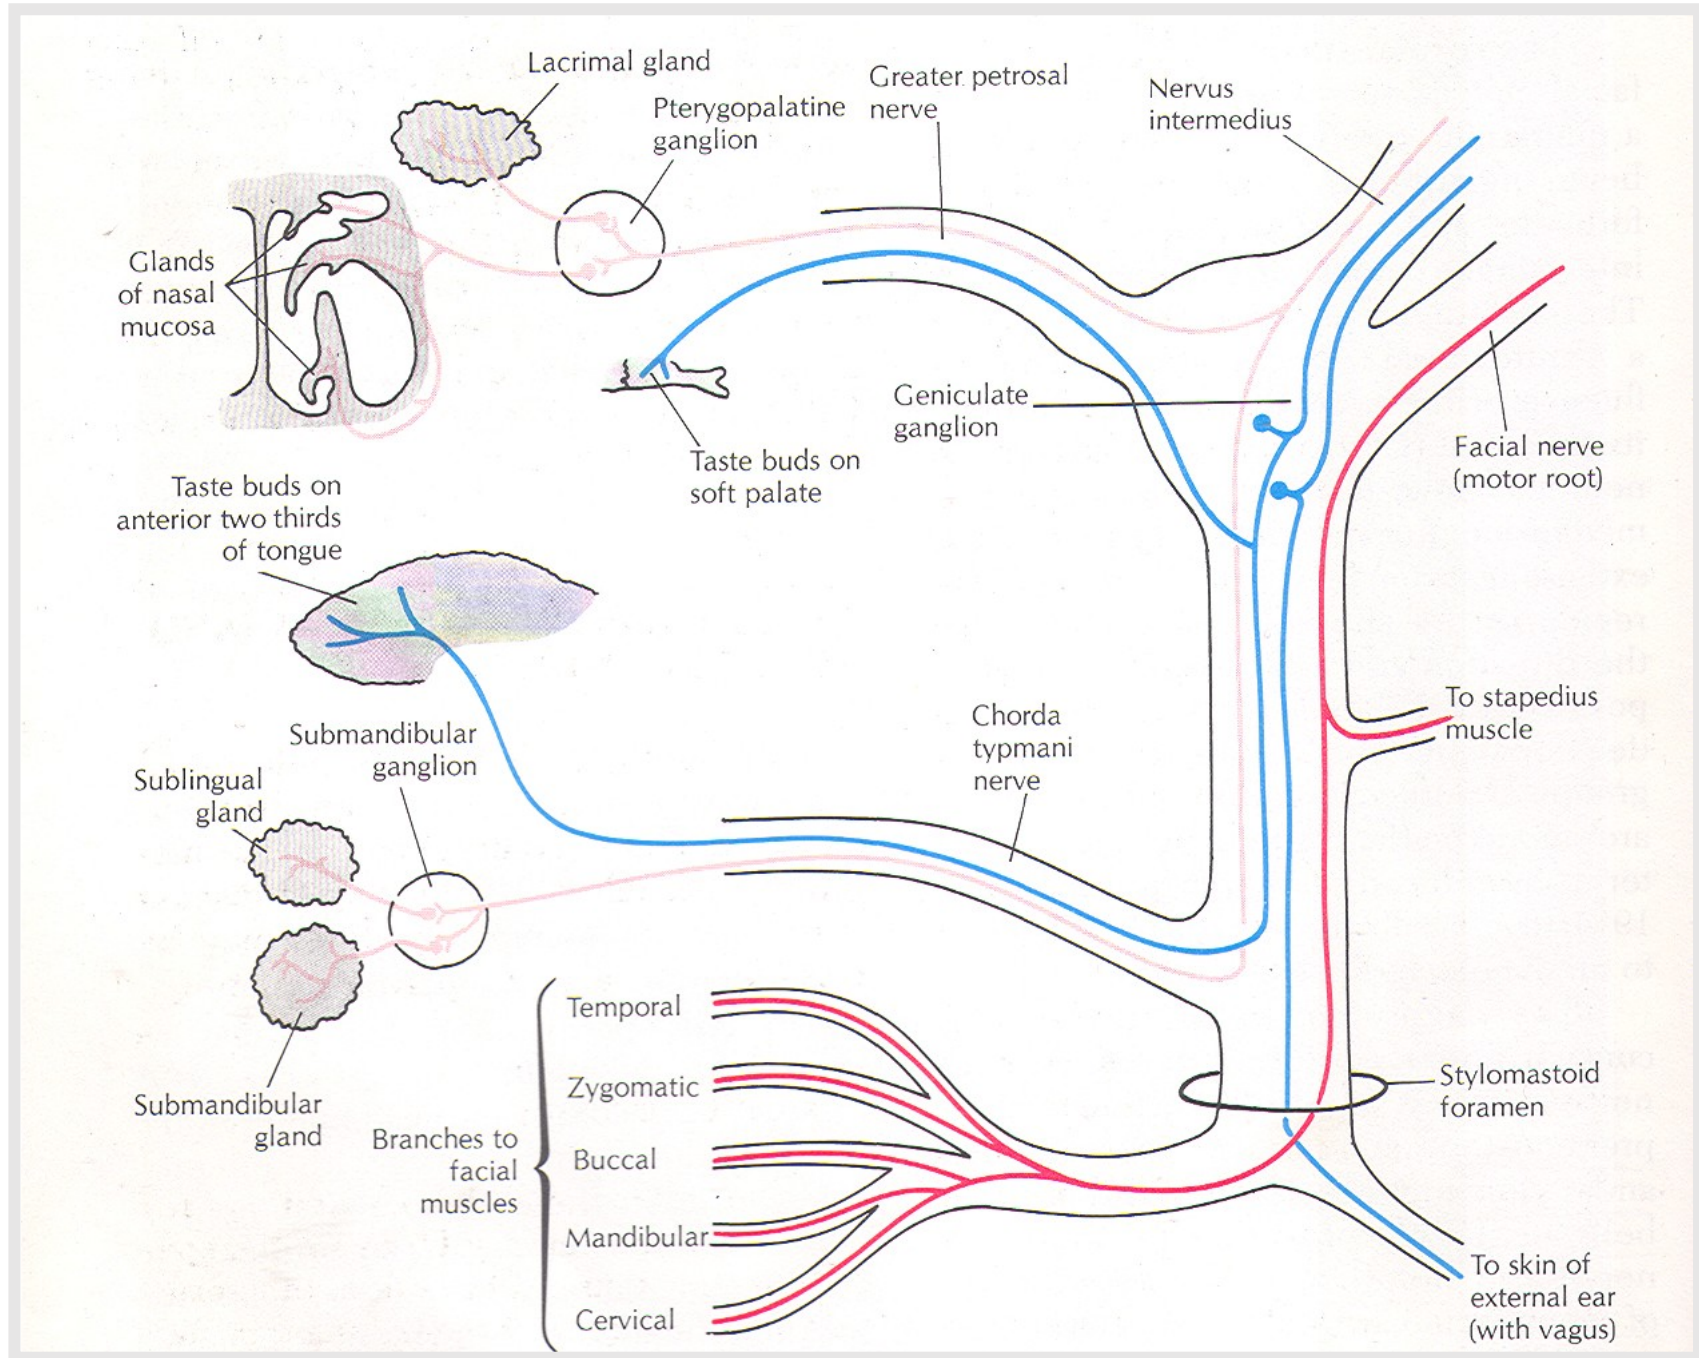 Lacrimal gland
Pterygopalatine
ganglion
Greater petrosal
nerve
Nervus
intermedius
Glands
of nasal
mucosa
Geniculate
ganglion
Facial nerve
(motor root)
Taste buds on
soft palate
Taste buds on
anterior two thirds
of tongue
To stapedius
muscle
Chorda
typmani
nerve
Submandibular
ganglion
Sublingual
gland
Submandibular
gland
Branches to
facial
muscles
Temporal
Zygomatic
Buccal
Mandibular
Cervical
Stylomastoid
foramen
To skin of
external ear
(with vagus)